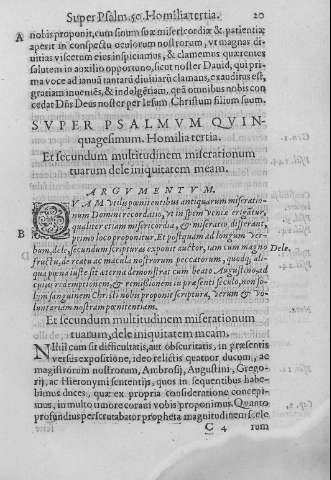 Super Psalm. 50. Homilia tertia. 20
A nobis proponit, cum sinum suæ misericordiæ & patientiæ
aperit in conspectu oculorum nostrorum, vt magnas di-
uitias viscerum eius inspiciamus, & clamemus quærentes
salutem in auxilio opportuno, sicut noster Dauid, qui pri-
ma voce ad ianuā tantarū diuitiarū clamans, exauditus est,
gratiam inueniēs, & indulgētiam, quā omnibus nobis con
cedat Dñs Deus noster per Iesum Christum filium suum.
SVPER PSALMVM QVIN-
quagesimum. Homilia tertia.
Et secundum multitudinem miserationum
tuarum dele iniquitatem meam.
ARGVMENTVM.
QVAM vtilis pœnitentibus antiquarum miseratio-
num Domini recordatio, vt in spem veniæ erigātur,
qualiter etiam misericordia, & miseratio, differant,
B primo loco proponitur. Et postquam ad longum ver-
bum, dele, secundum scripturas exponit auctor, tam cum magno Dele.
fructu, de reatu ac macula nostrorum peccatorum, quodq; ali-
qua pœna iuste sit æterna demonstrat cum beato Augustino, ad
cuius redemptionem, & remissionem in præsenti seculo, non so-
lum sanguinem Christi nobis proponit scriptura, verum & vo-
luntariam nostram pœnitentiam.
Et secundum multitudinem miserationum
tuarum, dele iniquitatem meam.
Nihil cum sit difficultatis, aut obscuritatis, in præsentis
versus expositione, ideo relictis quatuor ducum, ac
magistrorum nostrorum, Ambrosij, Augustini, Grego-
rij, ac Hieronymi sententijs, quos in sequentibus habe-
bimus duces, quæ ex propria consideratione concepi-
mus, in multo timore coram vobis proponimus. Quanto
profundius perscrutabatur propheta magnitudinem scele
C 4 rum